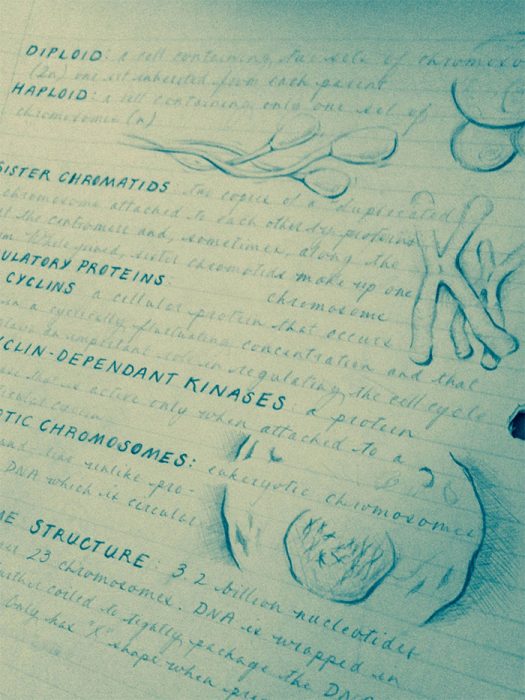 DIPLOID: a cell containing two sets of chromoso
(2n) one set inherited from each parent
HAPLOID: a cell containing only one set of
chromosomes (n)
SISTER CHROMATIDS two copies of a duplicated
chromosome attached to each other by proteins
at the centromere and, sometimes, along the
While joined, sister chromatids make up one
chromosome
ULATORY PROTEINS.
CYCLINS a cellular protein that occurs
in a cyclically fluctuating concentration and that
plays an important role in regulating the cell cycle
YCLIN-DEPENDANT KINASES: a protein
that is active only when attached to a
particular cyclin
OTIC CHROMOSOMES: eukaryotic chromosomes
and line unlike pro-
DNA which is circular
ME STRUCTURE: 3.2 billion nucleotides
23 chromosomes. DNA is wrapped in
further coiled to tightly package the DNA
Only has "X" shape when